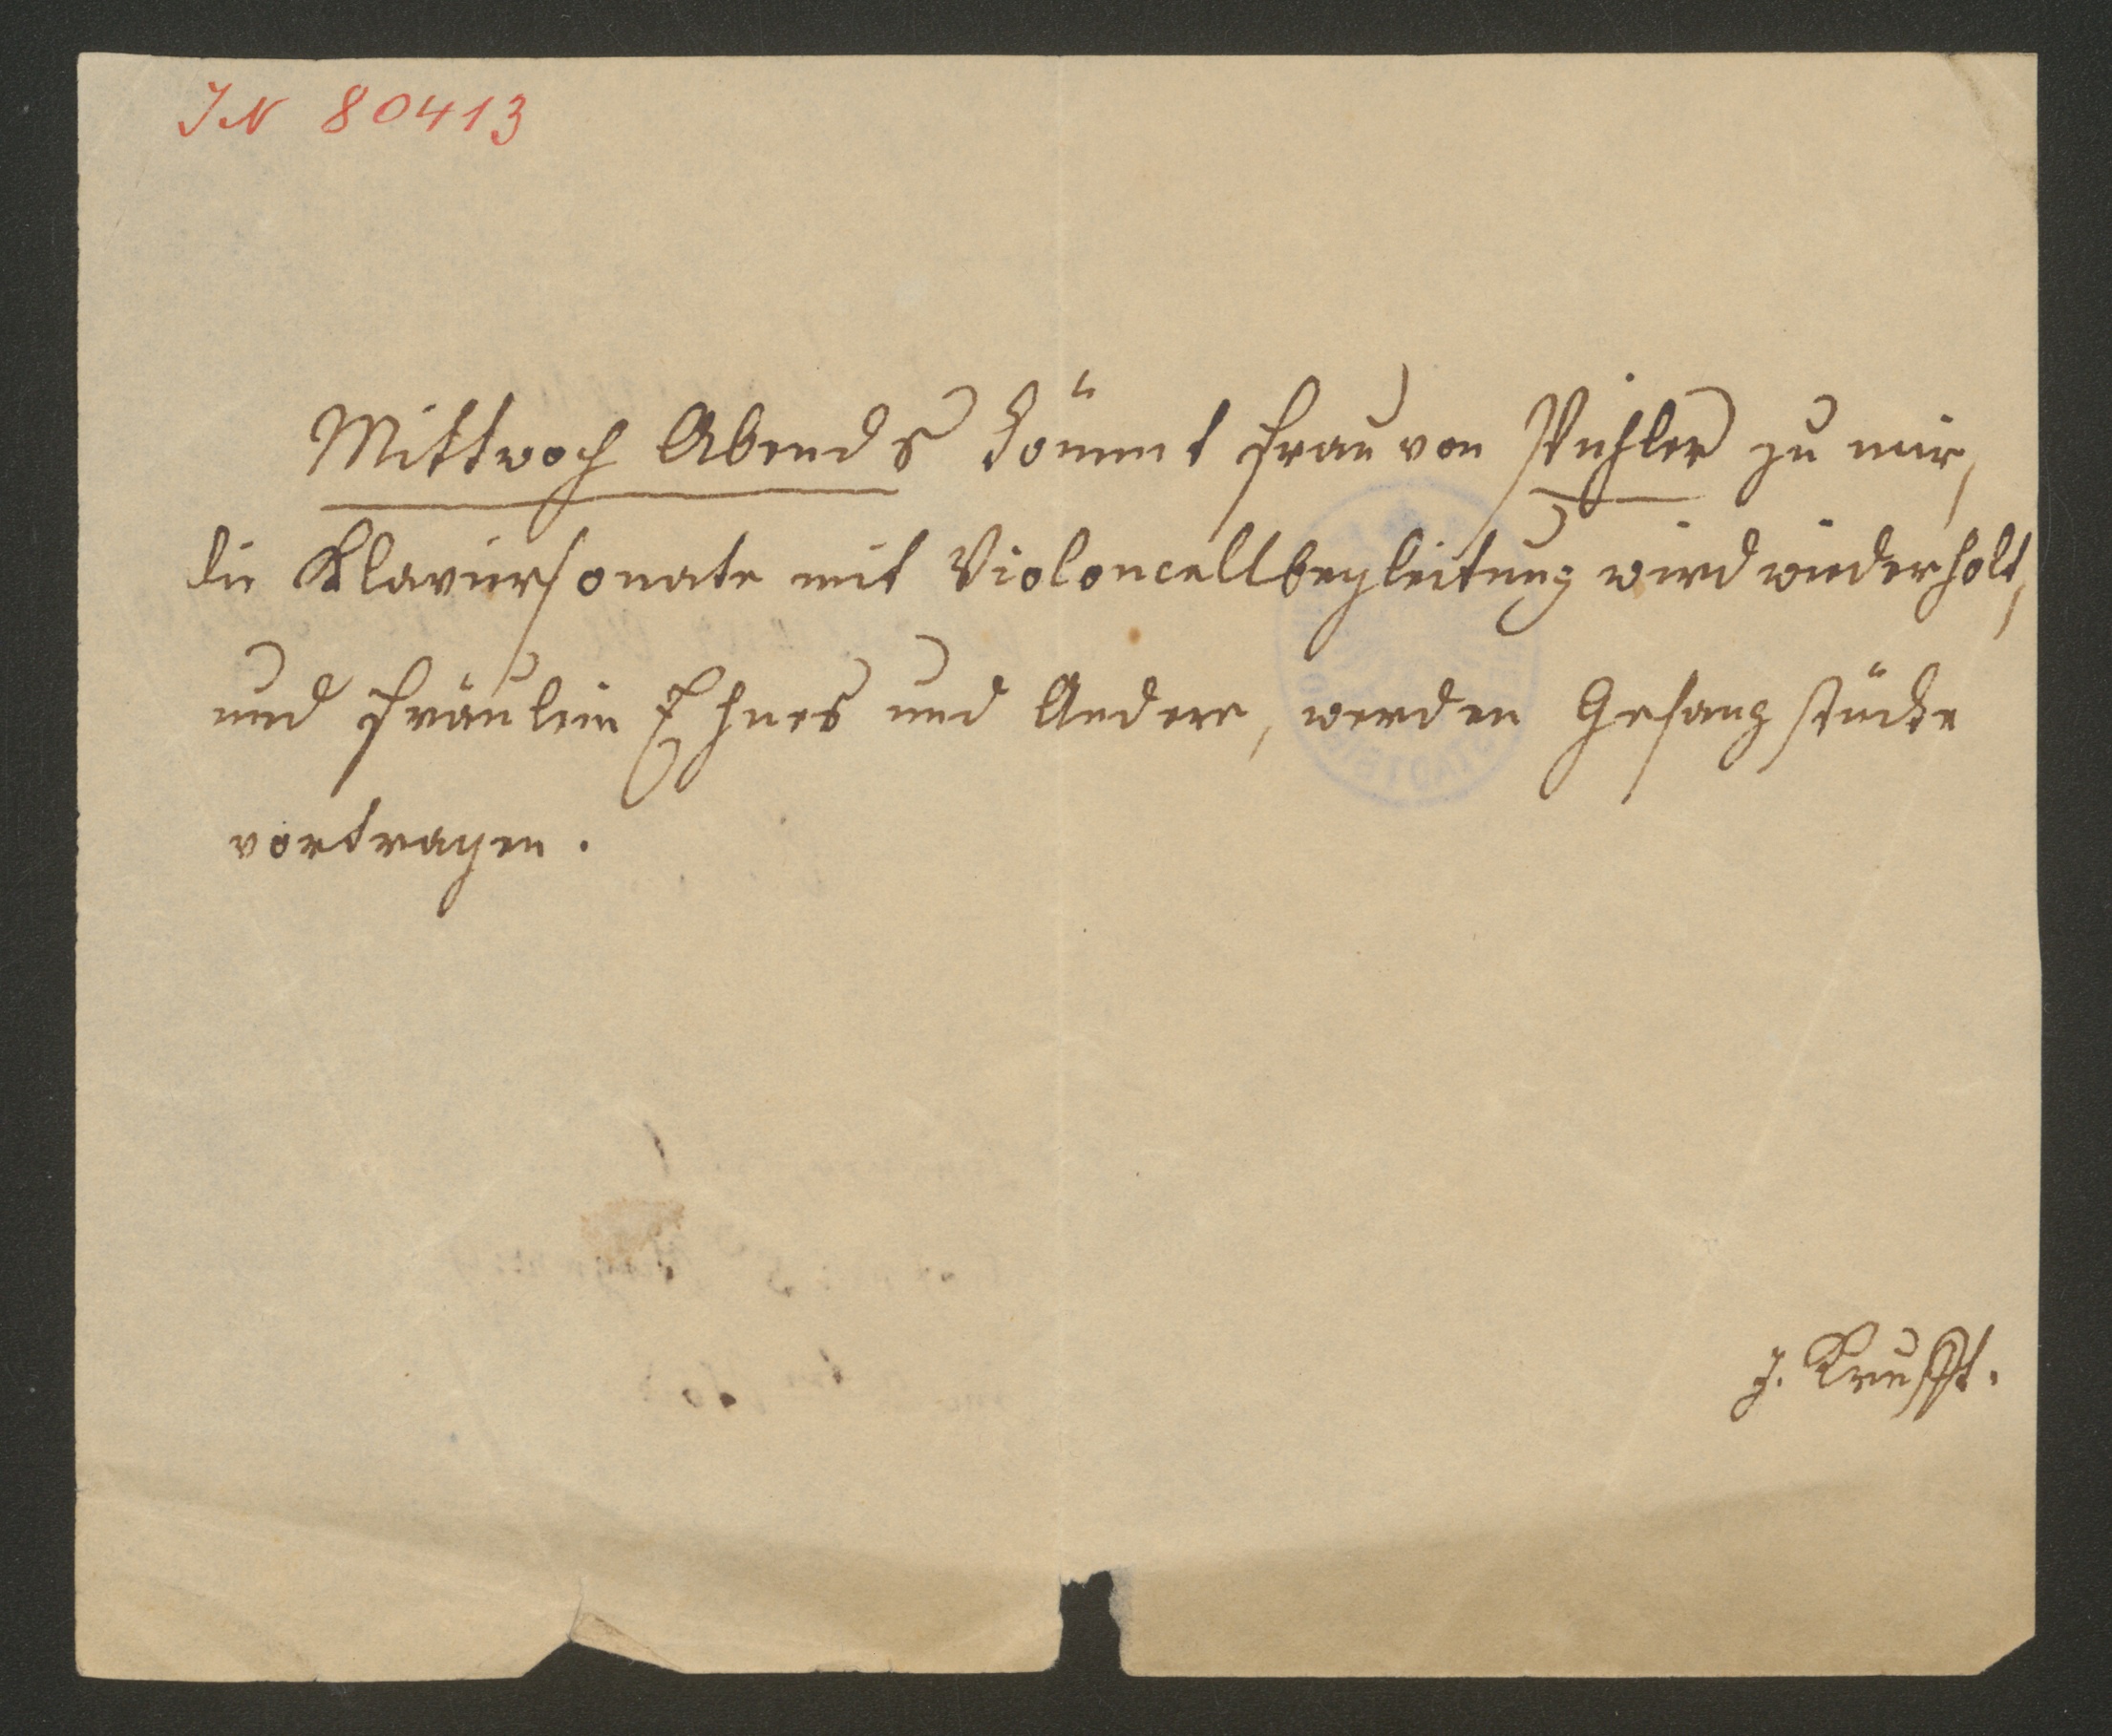 IN 80413
Mittwoch Abends kömmt Frau von Pichler zu mir,
die Klaviersonate mit Violoncellbegleitung wird wiederholt,
und Fräulein und Andere, werden Gesangstücke
vortragen.
J. Krufft.